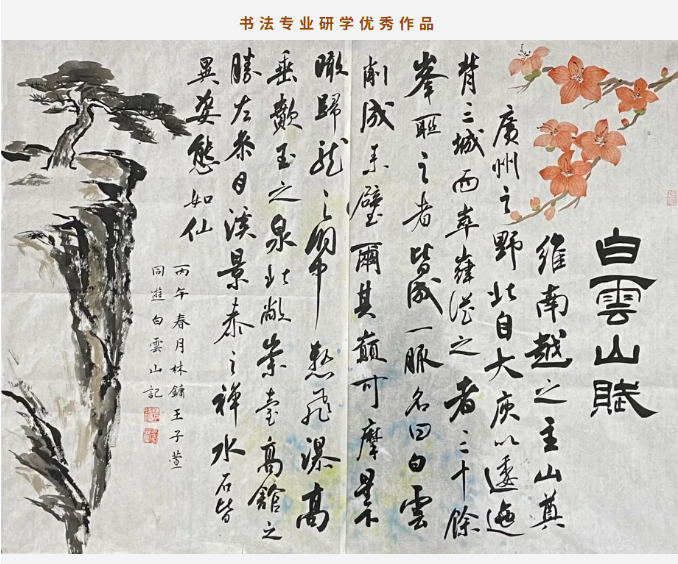 书法专业研学优秀作品
白雲山賦
維南越之主山奠
廣州之野北自大庾以逶迤
背三城而從之者三十餘
峯之者皆成一脈名曰白雲
削成赤壁爾其巔可摩星下
瞰歸龍之洞中懸飛瀑高
垂漱玉之泉北敞崇臺高館之
勝左參月溪景泰之禪水石皆
異姿態如仙
丙午春月林鏞王子萱
同遊白雲山記